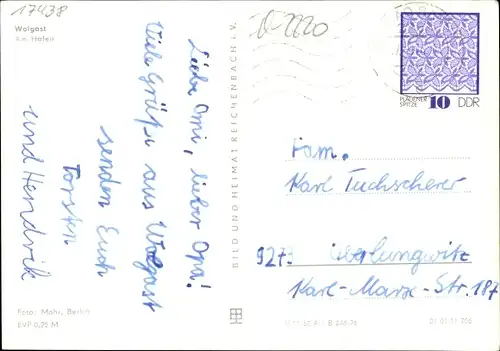 17438
Wolgast
Am Hafen
Liebe Omi, lieber Opa!
Viele Grüße aus Wolgast
senden Euch
Torsten
und Hendrik
Foto: Mohr, Berlin
EVP 0,25 M
BILD UND HEIMAT REICHENBACH i. V.
PLAUENER
SPITZE
10 DDR
Fam.
Karl Tuchscherer
927 Oberlungwitz
Karl-Marx-Str. 187
01 01 31 706